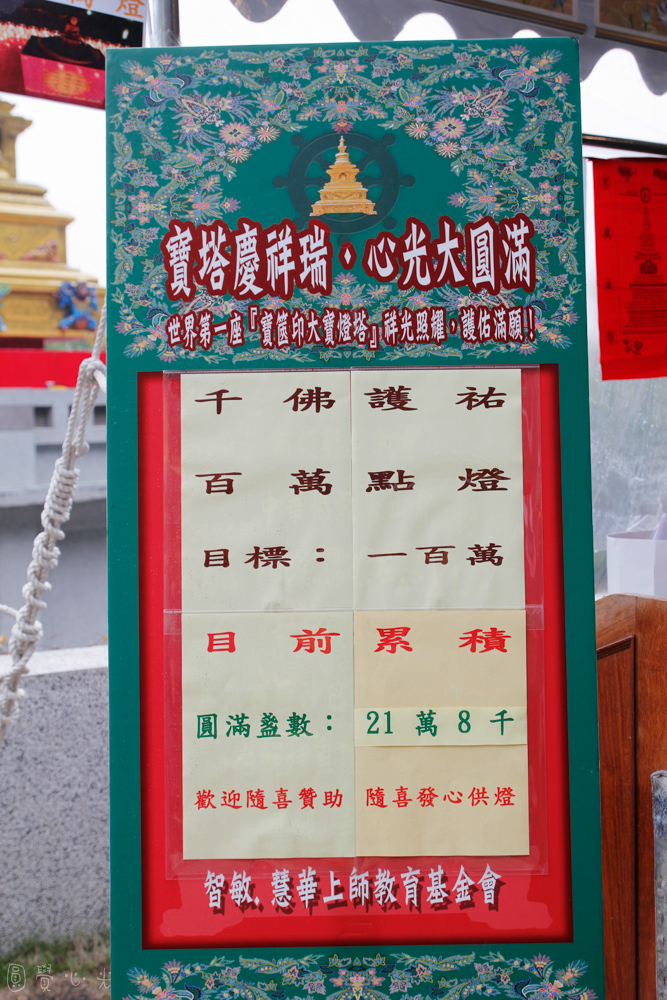 寶塔慶祥瑞・心光大圓滿
世界第一座『寶篋印大寶燈塔』祥光照耀，護佑滿願！
千佛護祐
百萬點燈
目標：一百萬
目前累積
圓滿盞數：21萬8千
歡迎隨喜贊助 隨喜發心供燈
智敏.慧華上師教育基金會
圓覺心光